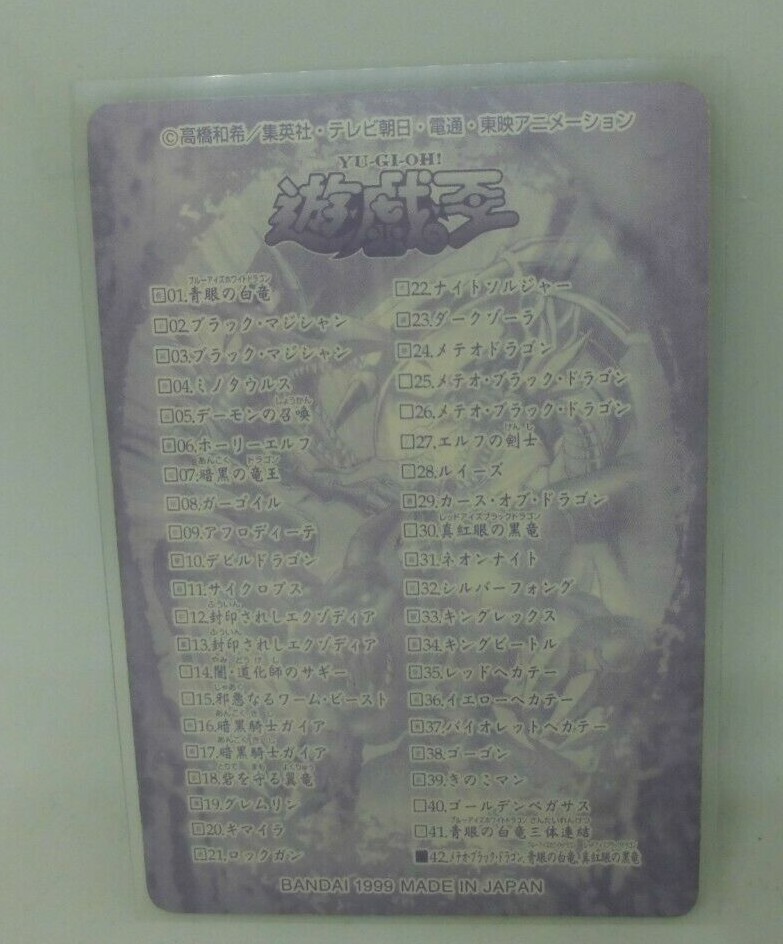 ©高橋和希／集英社・テレビ朝日・電通・東映アニメーション
YU-GI-OH!
遊戯王
ブルーアイズホワイトドラゴン
01.青眼の白竜
02.ブラック・マジシャン
03.ブラック・マジシャン
04.ミノタウルス
しょうかん
05.デーモンの召喚
06.ホーリーエルフ
あんこく ドラゴン
07.暗黒の竜王
08.ガーゴイル
09.アフロディーテ
10.デビルドラゴン
11.サイクロプス
ふういん
12.封印されしエクゾディア
ふういん
13.封印されしエクゾディア
やみ どうけし
14.闇・道化師のサギー
じゃあく
15.邪悪なるワーム・ビースト
あんこくきし
16.暗黒騎士ガイア
あんこくきし
17.暗黒騎士ガイア
とりで まも よくりゅう
18.砦を守る翼竜
19.グレムリン
20.キマイラ
21.ロックガン
22.ナイトソルジャー
23.ダークゾーラ
24.メテオドラゴン
25.メテオ・ブラック・ドラゴン
26.メテオ・ブラック・ドラゴン
けんし
27.エルフの剣士
28.ルイーズ
29.カース・オブ・ドラゴン
レッドアイズブラックドラゴン
30.真紅眼の黒竜
31.ネオンナイト
32.シルバーフォング
33.キングレックス
34.キングビートル
35.レッドヘカテー
36.イエローヘカテー
37.バイオレットヘカテー
38.ゴーゴン
39.きのこマン
40.ゴールデンペガサス
ブルーアイズホワイトドラゴン さんたいれんけつ
41.青眼の白竜三体連結
42.メテオ・ブラック・ドラゴン、青眼の白竜、真紅眼の黒竜
BANDAI 1999 MADE IN JAPAN